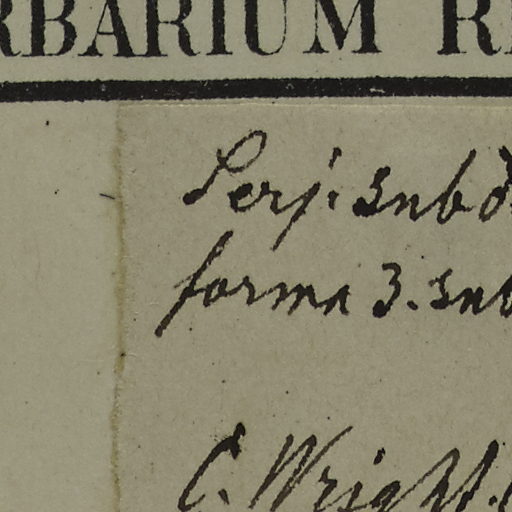 RBARIUM R
Serj. subd
forma 3. sub
C. Wright.